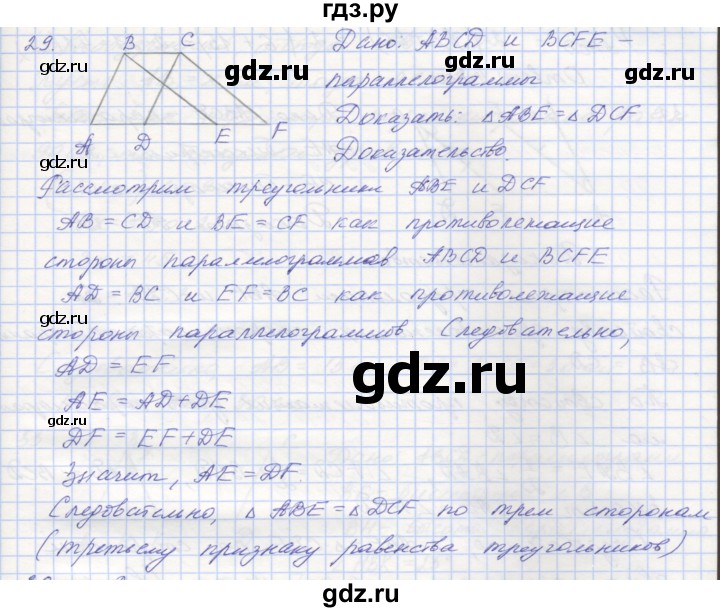 гдз.ру
29.
B C
A D E F
Дано: ABCD и BCFE –
параллелограммы
Доказать: △ABE = △DCF
Доказательство.
Рассмотрим треугольники ABE и DCF
AB = CD и BE = CF как противолежащие
стороны параллелограммов ABCD и BCFE
AD = BC и EF = BC как противолежащие
стороны параллелограммов Следовательно,
AD = EF
AE = AD + DE
DF = EF + DE
Значит, AE = DF.
Следовательно, △ABE = △DCF по трем сторонам
(третьему признаку равенства треугольников)
gdz.ru
gdz.ru
gdz.ru
gdz.ru
gdz.ru
gdz.ru
gdz.ru
gdz.ru
gdz.ru
gdz.ru